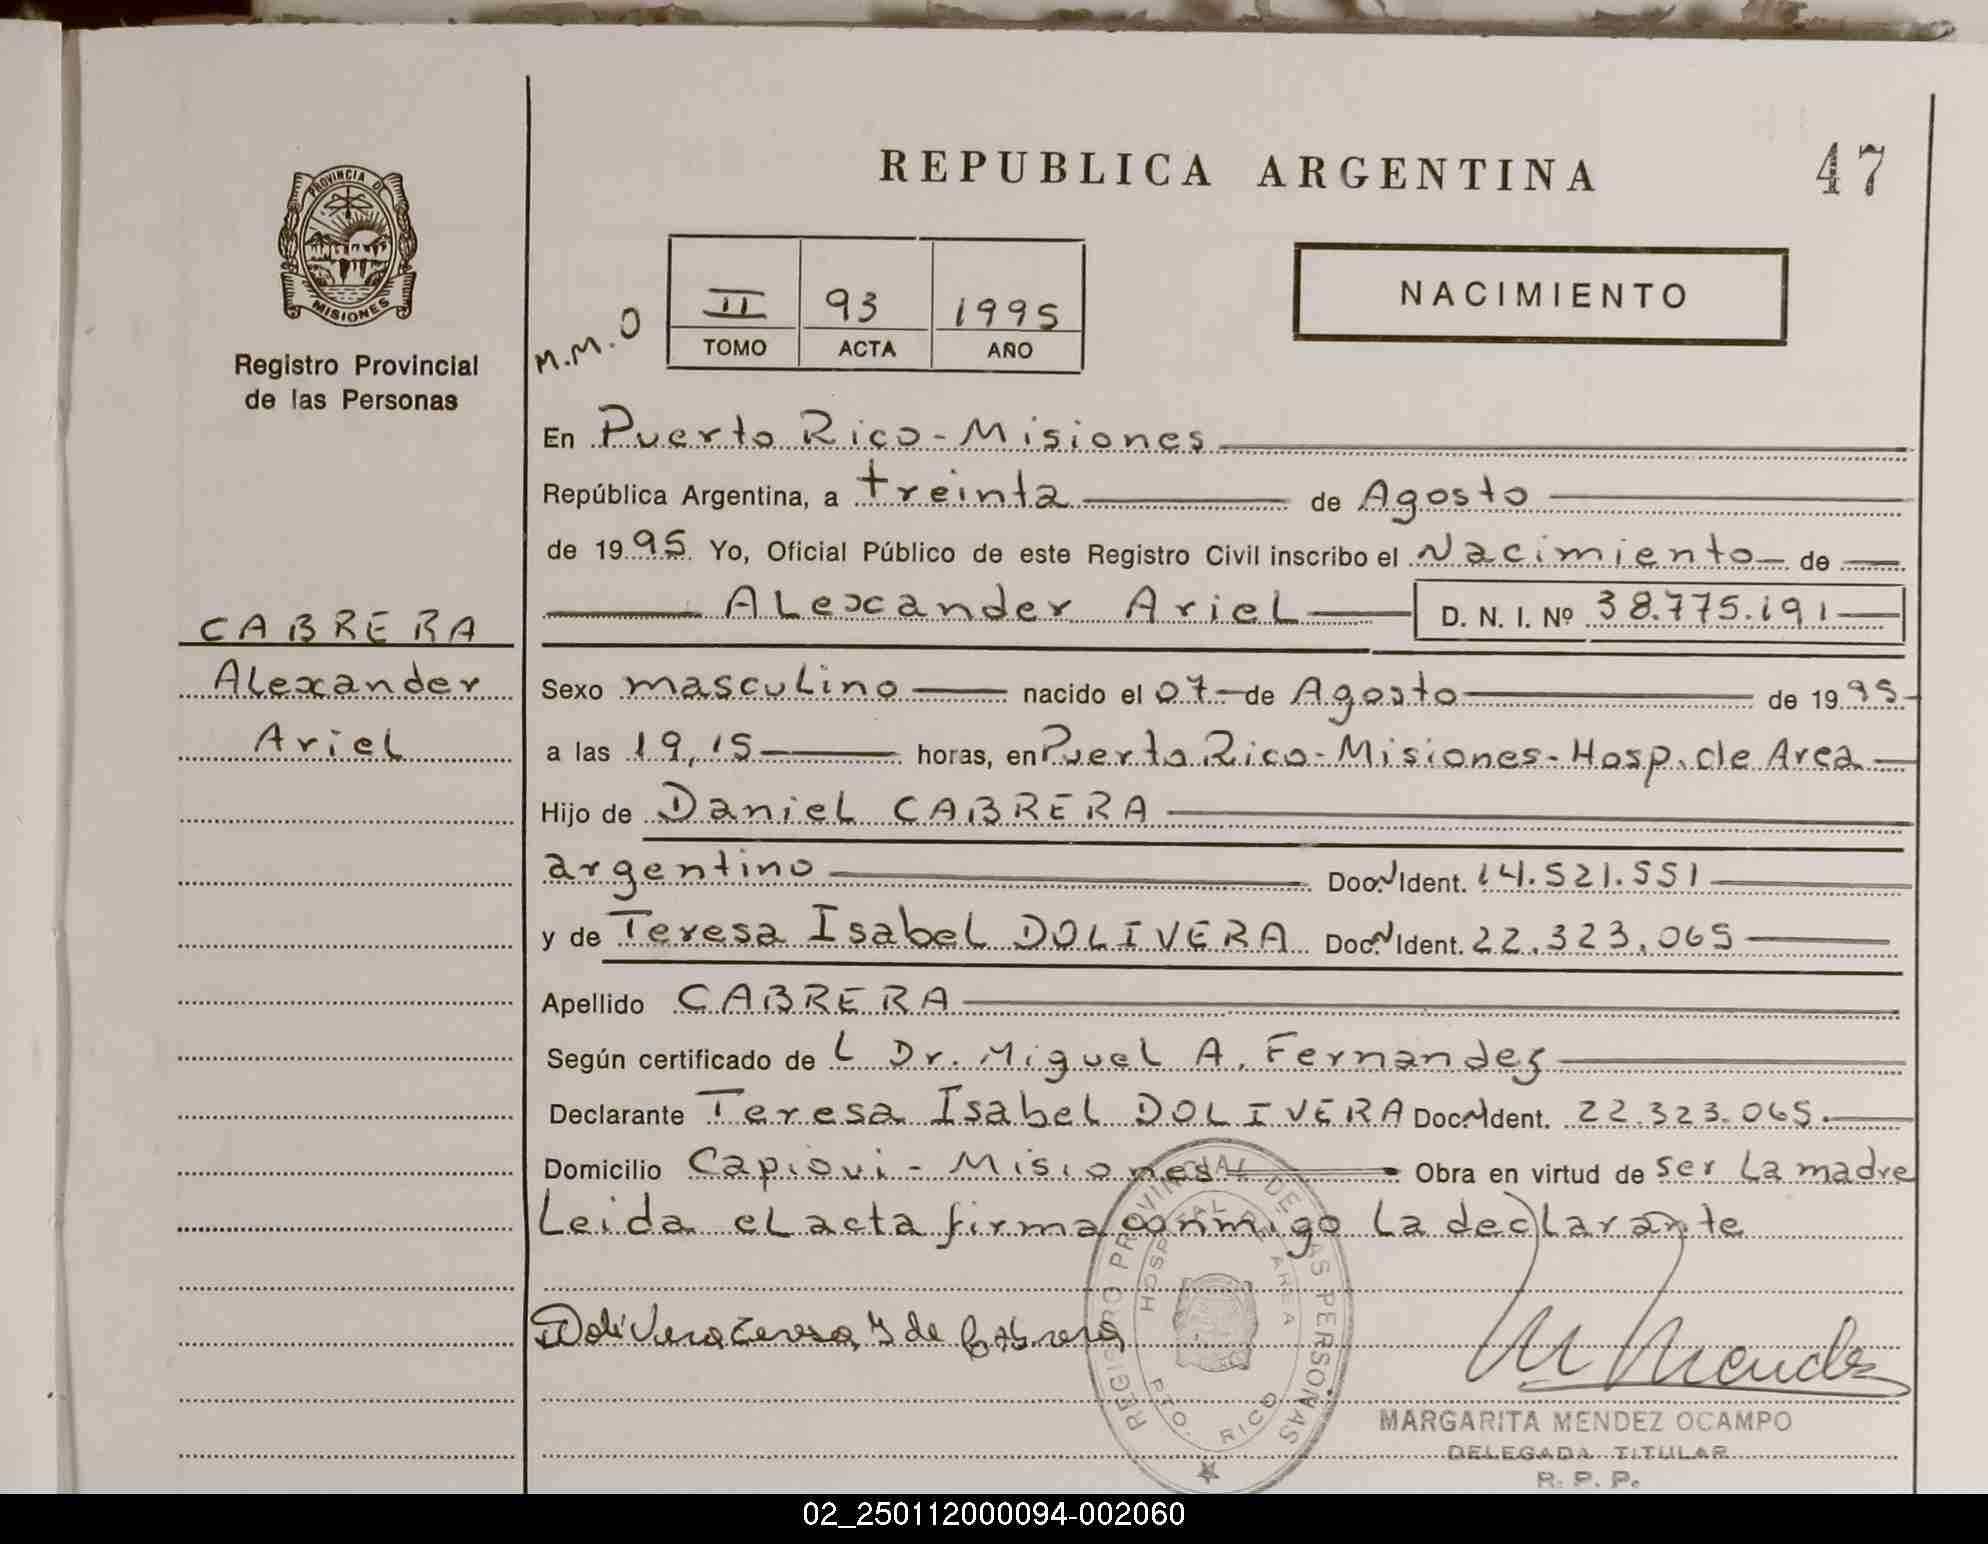 REPUBLICA ARGENTINA
47
PROVINCIA DE
MISIONES
Registro Provincial
de las Personas
M.M.O
II 93 1995
TOMO ACTA AÑO
NACIMIENTO
En Puerto Rico - Misiones
República Argentina, a treinta de Agosto
de 1995 Yo, Oficial Público de este Registro Civil inscribo el Nacimiento de
Alexander Ariel D. N. I. Nº 38.775.191
CABRERA
Alexander
Ariel
Sexo masculino nacido el 07 de Agosto de 1995
a las 19,15 horas, en Puerto Rico - Misiones - Hosp. de Area
Hijo de Daniel CABRERA
argentino Doc. N Ident. 14.521.551
y de Teresa Isabel DOLIVERA Doc. N Ident. 22.323.065
Apellido CABRERA
Según certificado de L Dr. Miguel A. Fernandez
Declarante Teresa Isabel DOLIVERA Doc. N Ident. 22.323.065.
Domicilio Capiovi - Misiones Obra en virtud de ser la madre
Leida el acta firma conmigo la declarante
Dolivera Teresa Y de Cabrera
REGISTRO PROVINCIAL DE LAS PERSONAS
HOSPITAL DE AREA
PTO. RICO
M Mendez
MARGARITA MENDEZ OCAMPO
DELEGADA TITULAR
R. P. P.
02_250112000094-002060